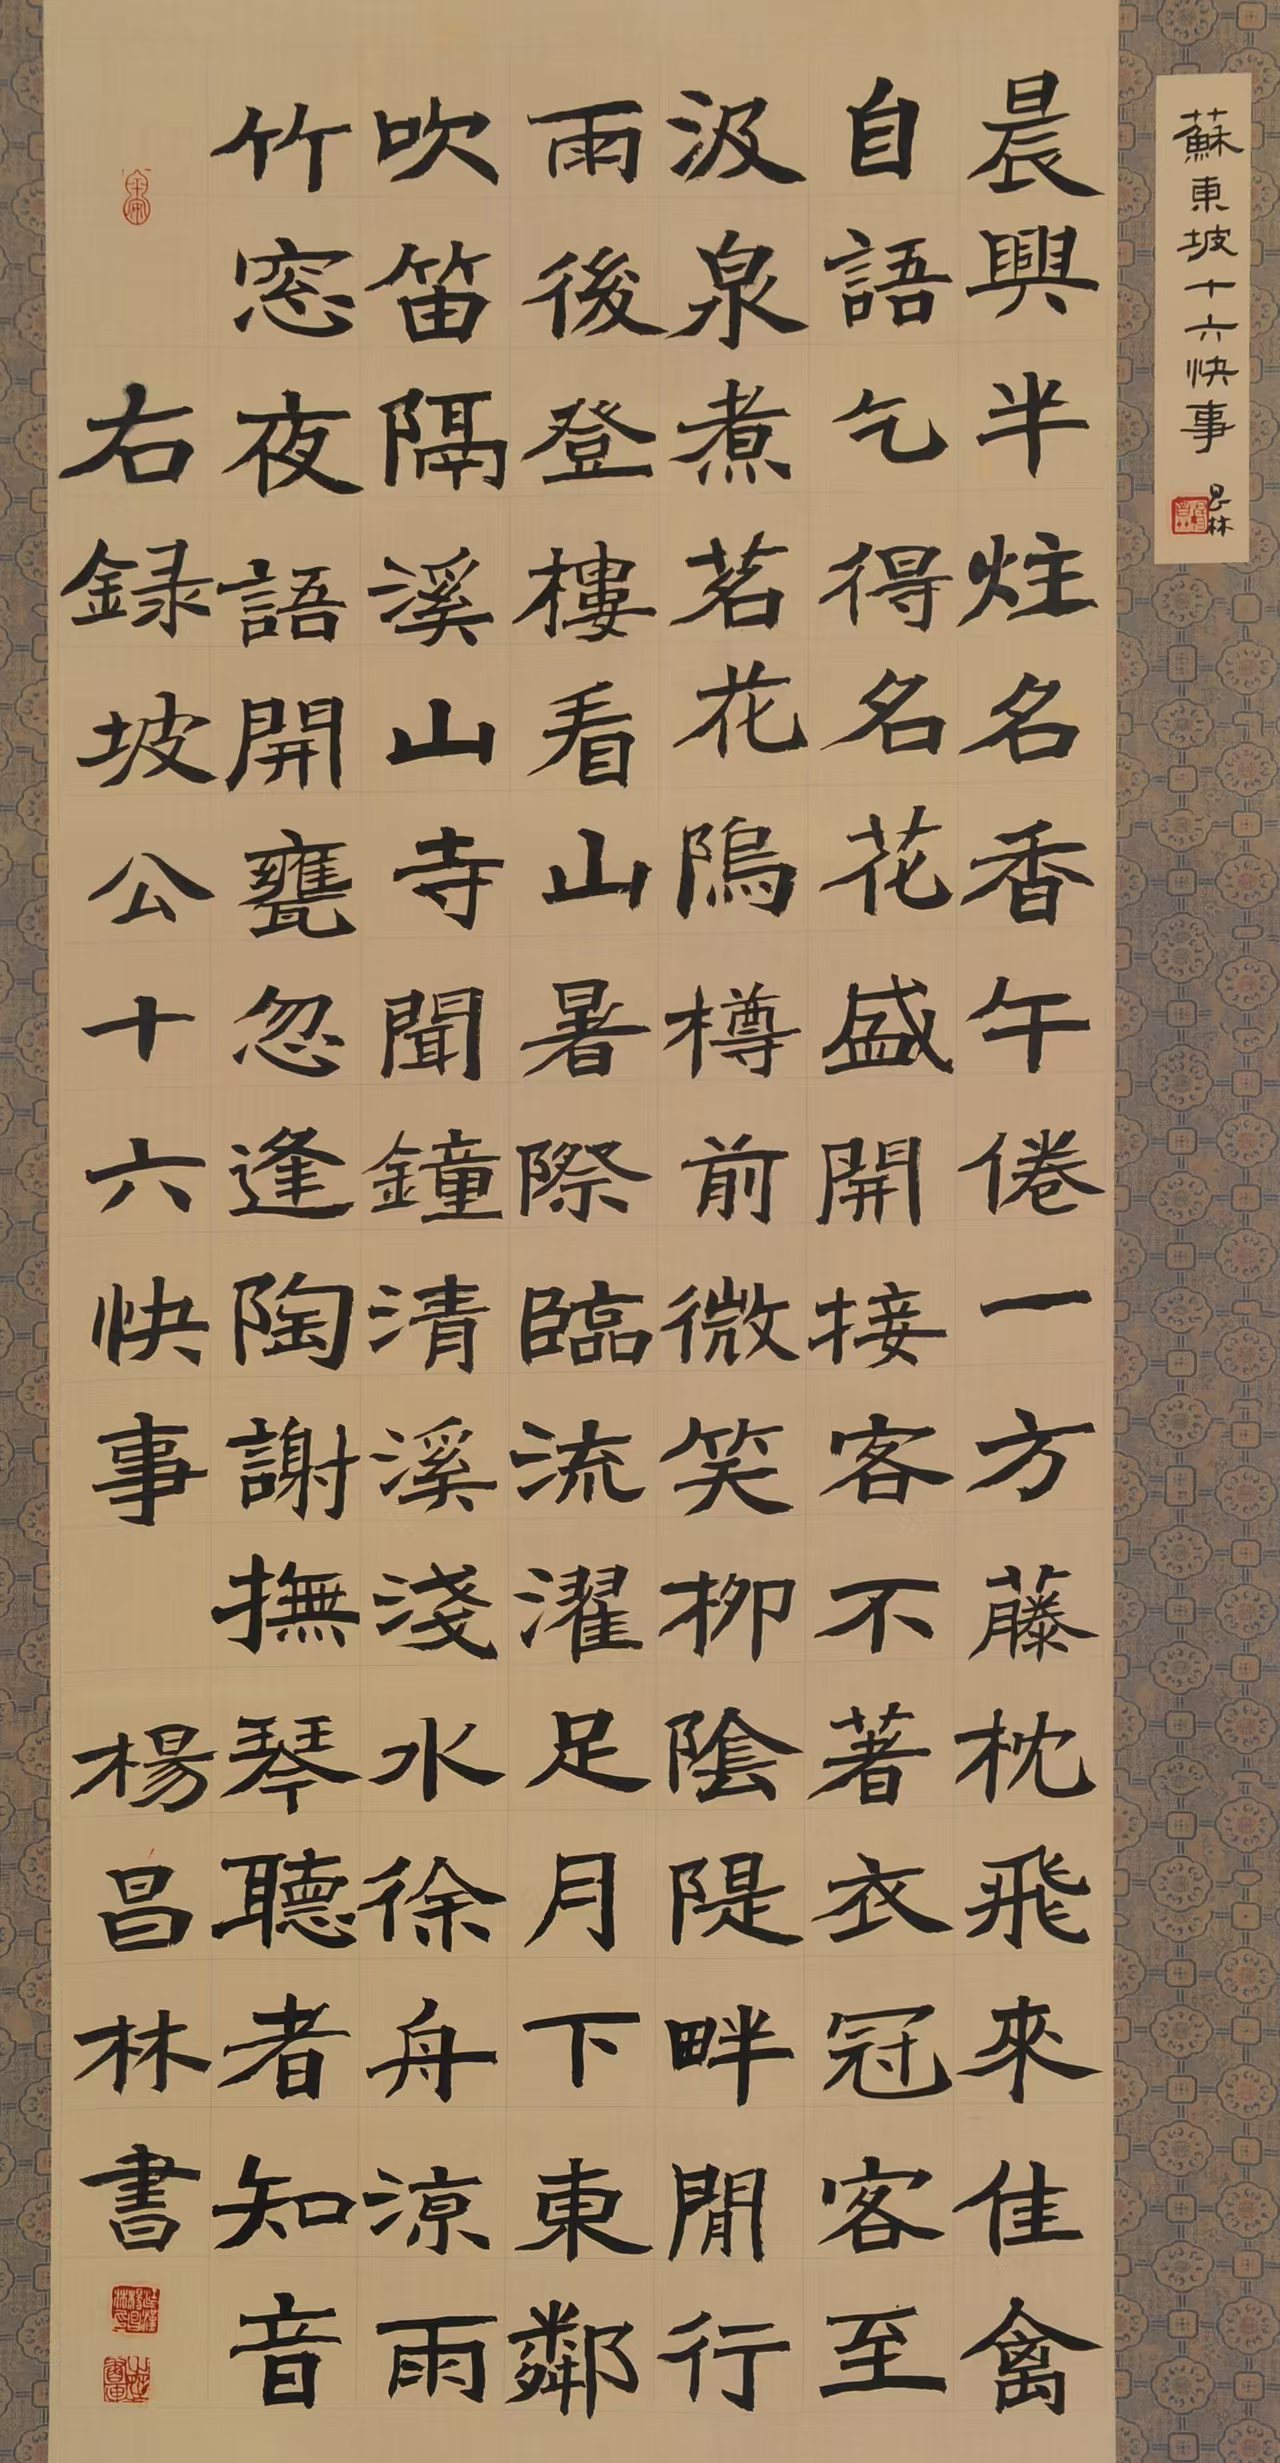 蘇東坡十六快事
昌林
晨興半炷名香午倦一方藤枕飛來佳禽
自語乞得名花盛開接客不著衣冠客至
汲泉煮茗花隖樽前微笑柳陰隄畔閒行
雨後登樓看山暑際臨流濯足月下東鄰
吹笛隔溪山寺聞鐘清溪淺水徐舟涼雨
竹窓夜語開甕忽逢陶謝撫琴聽者知音
右録坡公十六快事 楊昌林書